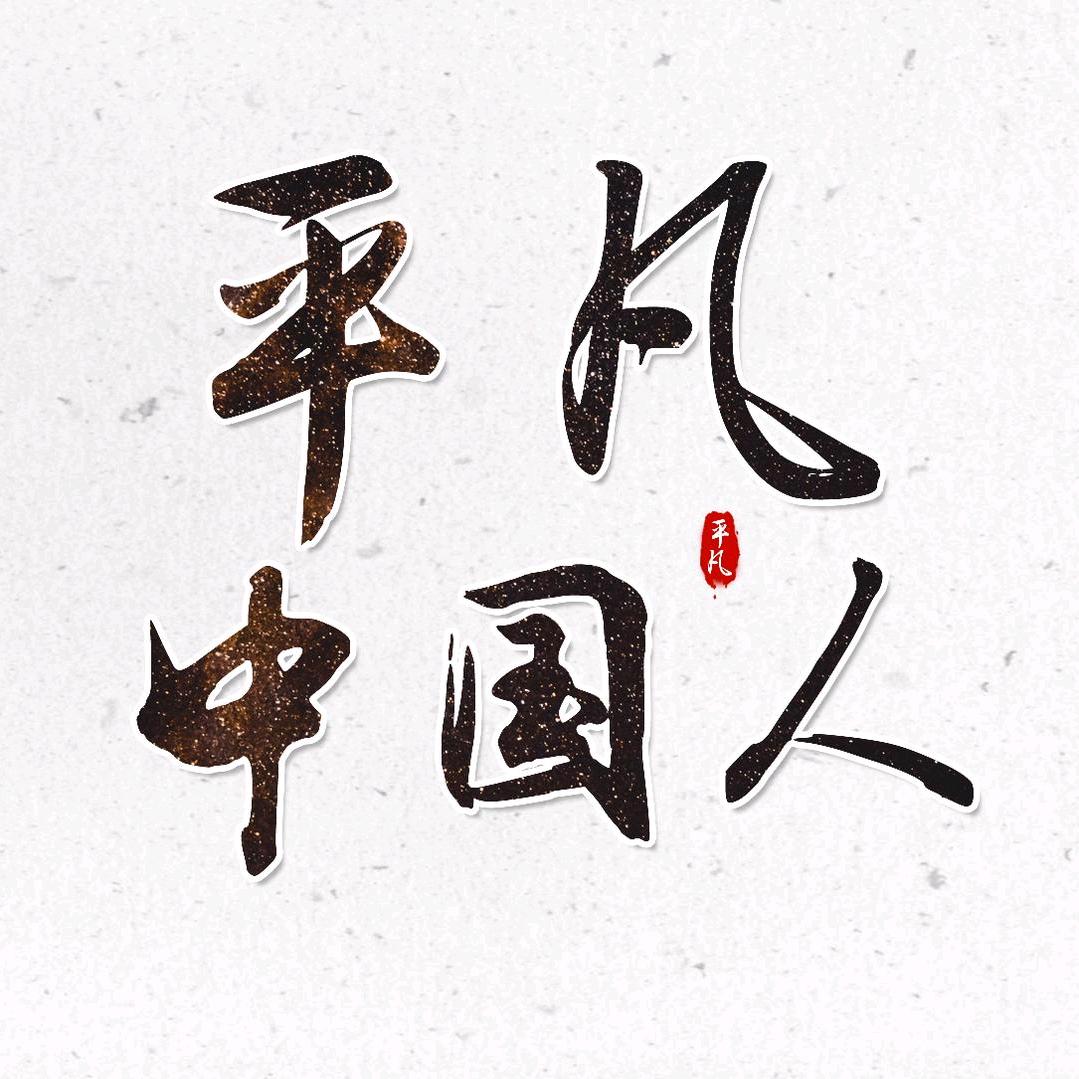 平凡
平凡
中国人